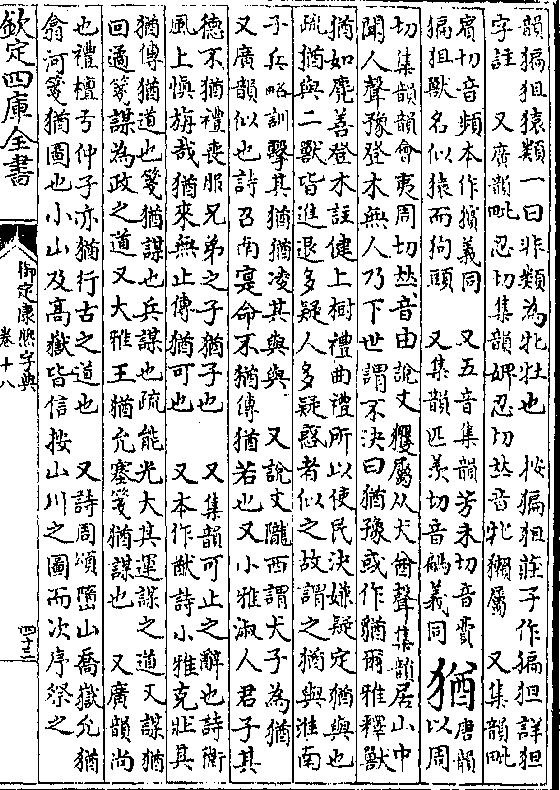 韻猵狙猿類一曰非類為牝牡也　按猵狙莊子作猵狚詳狚
字註　又廣韻毗忍切集韻婢忍切𠀤音牝獺屬　又集韻毗
賓切音頻本作㺍義同　又五音集韻芳未切音費
猵狙獸名似猿而狗頭　又集韻匹羨切音騗義同
猶
唐韻
以周
切集韻韻會夷周切𠀤音由說文玃屬从犬酋聲集韻居山中
聞人聲豫登木無人乃下世謂不決曰猶豫或作猶爾雅釋獸
猶如麂善登木註健上樹禮曲禮所以使民決嫌疑定猶與也
疏猶與二獸皆進退多疑人多疑惑者似之故謂之猶與淮南
子兵略訓擊其猶猶凌其與與　又說文隴西謂犬子為猶
又廣韻似也詩召南寔命不猶傳猶若也又小雅淑人君子其
德不猶禮喪服兄弟之子猶子也　又集韻可止之辭也詩衛
風上愼旃哉猶來無止傳猶可也　又本作猷詩小雅克壯其
猶傳猶道也箋猶謀也兵謀也疏能光大其運謀之道又謀猶
回遹箋謀為政之道又大雅王猶允塞箋猶謀也　又廣韻尚
也禮檀弓仲子亦猶行古之道也　又詩周頌墮山喬嶽允猶
翕河箋猶圖也小山及高嶽皆信按山川之圖而次序祭之
欽定四庫全書
御定康熙字典
卷十八
四十三